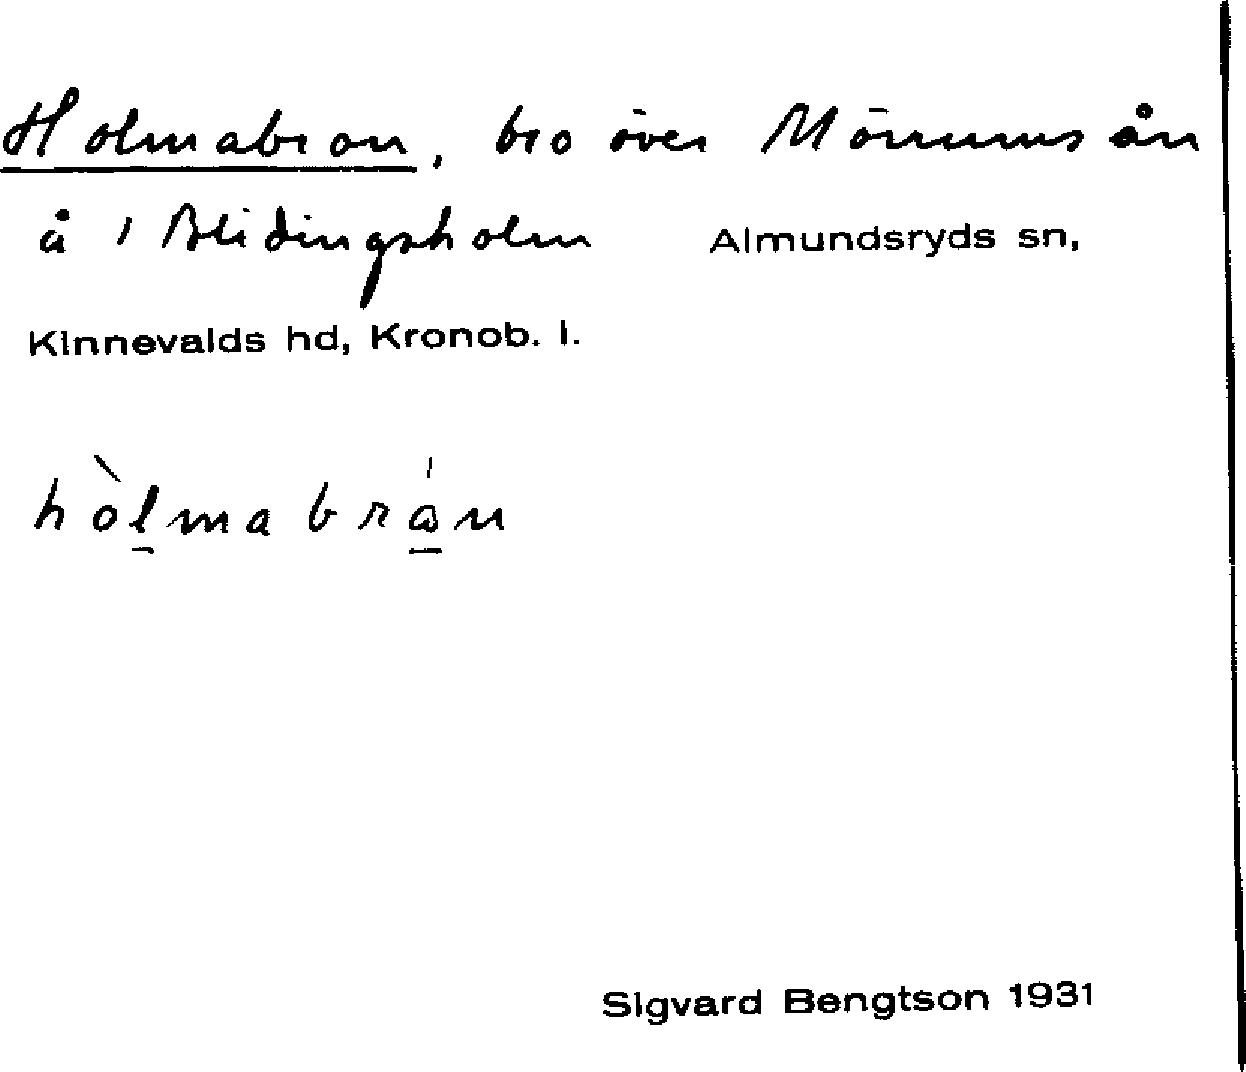 Holmabron, bro över Mörrumsån
å 1 Blidingsholm Almundsryds sn,
Kinnevalds hd, Kronob. l.
hòlmabrån
Sigvard Bengtson 1931